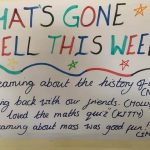 HAT'S GONE
ELL THIS WEE
earning about the history of
ing back with our friends. (MOLL
loved the maths quiz (KITTY)
earning about mass was good fun!